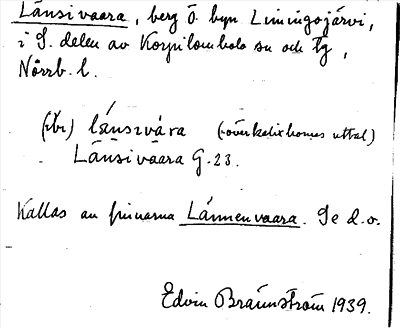 Länsivaara, berg Ö. byn Liningojärvi,
i S. delen av Korpilombolo sn och tg,
Norrb. l.
länsivára (-överkalixbornas uttal)
Länsivaara G. 23.
Kallas av finnarna Lännenvaara. Se d.o.
Edvin Brännström 1939.